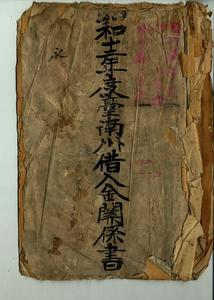 昭和十二年度臺南州借入金關係書
永